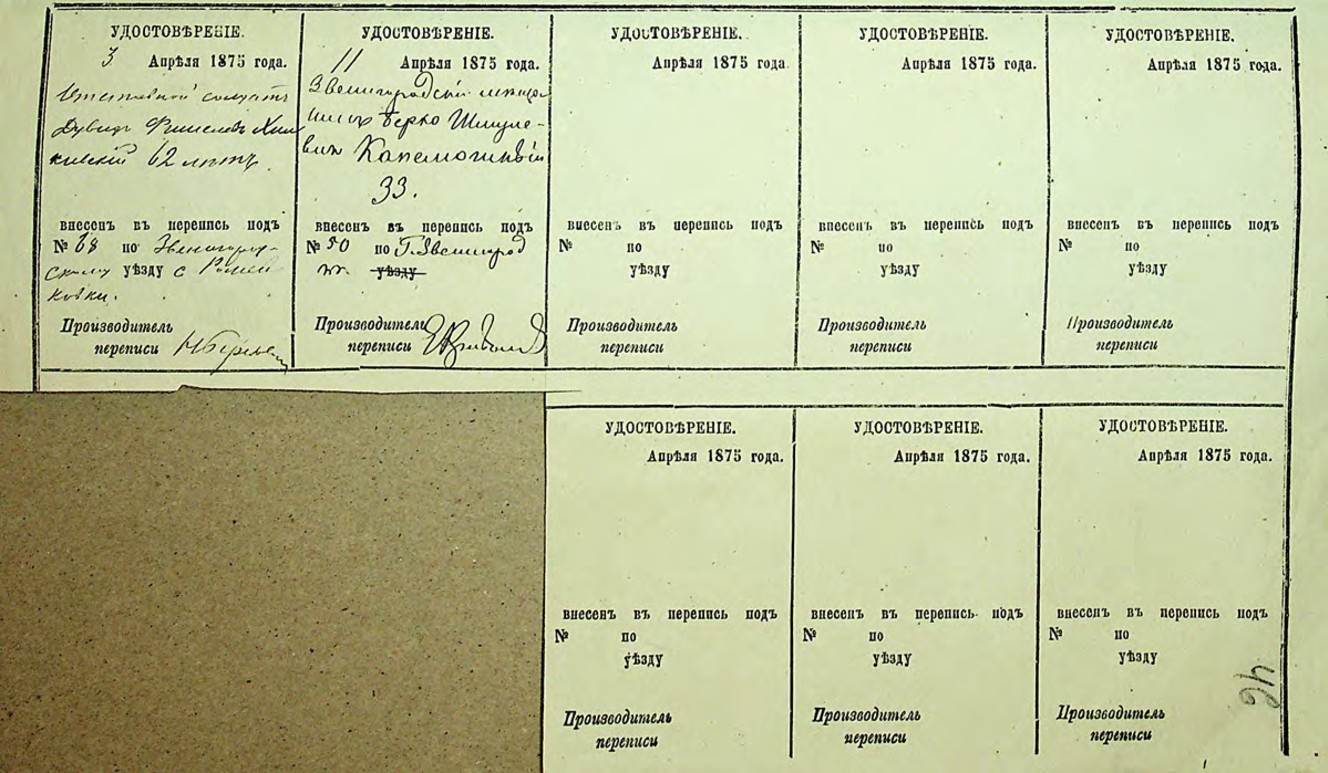 УДОСТОВѢРЕНІЕ.
3 Апрѣля 1875 года.
Отставной солдатъ
Дувидъ
62 лѣтъ.
внесенъ въ перепись подъ
№ 68 по Звенигород-
скому уѣзду с
Производитель
переписи
УДОСТОВѢРЕНІЕ.
11 Апрѣля 1875 года.
Звенигородскій
Берко Шмуле-
вич
33.
внесенъ въ перепись подъ
№ 50 по Г. Звенигород
уѣзду
Производитель
переписи
УДОСТОВѢРЕНІЕ.
Апрѣля 1875 года
внесенъ въ перепись подъ
№ по
уѣзду
Производитель
переписи
УДОСТОВѢРЕНІЕ.
Апрѣля 1875 года.
внесенъ въ перепись подъ
№ по
уѣзду
Производитель
переписи
УДОСТОВѢРЕНІЕ.
Апрѣля 1875 года.
внесенъ въ перепись подъ
№ по
уѣзду
Производитель
переписи
УДОСТОВѢРЕНІЕ.
Апрѣля 1875 года.
внесенъ въ перепись подъ
№ по
уѣзду
Производитель
переписи
УДОСТОВѢРЕНІЕ.
Апрѣля 1875 года.
внесенъ въ перепись подъ
№ по
уѣзду
Производитель
переписи
УДОСТОВѢРЕНІЕ.
Апрѣля 1875 года.
внесенъ въ перепись подъ
№ по
уѣзду
Производитель
переписи
46